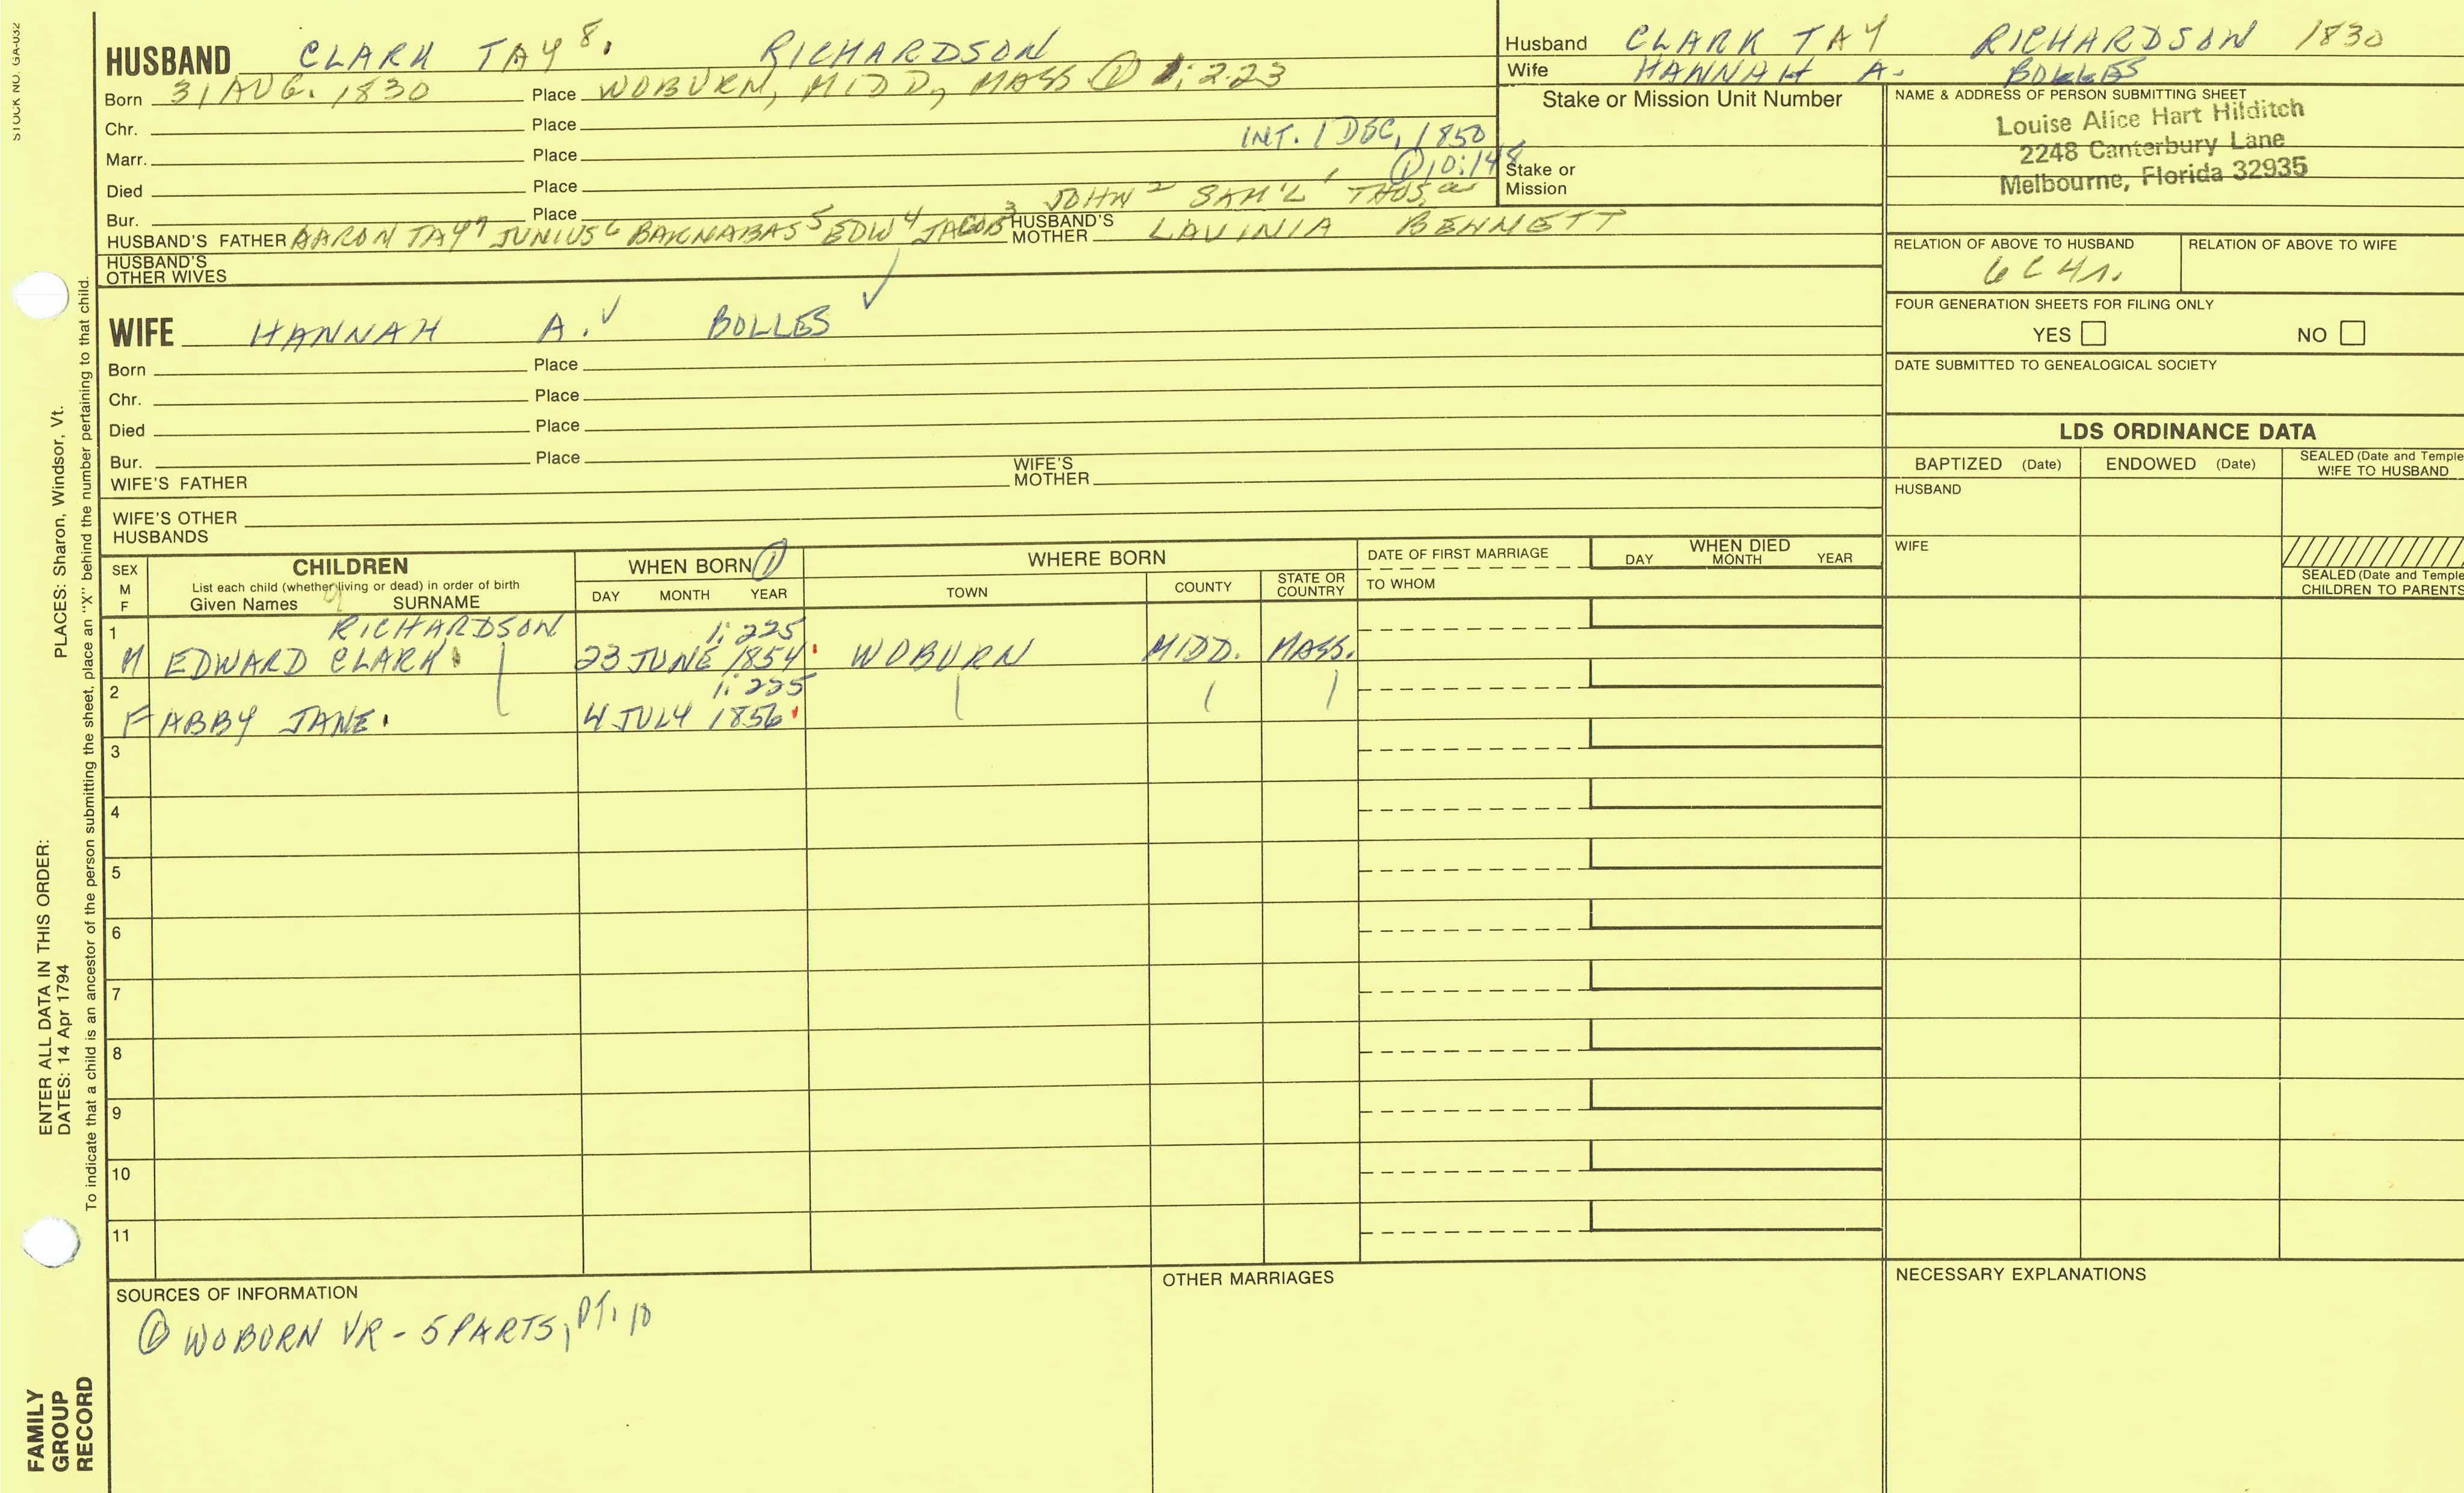 STOCK NO. GA-032
HUSBAND CLARK TAY 8. RICHARDSON
Born 31 AUG. 1830 Place WOBURN, MIDD, MASS ① 1:223
Chr. Place
INT. 1 DEC, 1850
Marr. Place
① 10:148
Died Place
JOHN 2 SAM'L 1 THOS a
Bur. Place
HUSBAND'S FATHER AARON TAY 7 JUNIUS 6 BARNABAS 5 EDW 4 JACOB 3 HUSBAND'S MOTHER LAVINIA BENNETT
HUSBAND'S OTHER WIVES
WIFE HANNAH A. BOLLES
Born Place
Chr. Place
Died Place
Bur. Place
WIFE'S FATHER WIFE'S MOTHER
WIFE'S OTHER HUSBANDS
Husband CLARK TAY RICHARDSON 1830
Wife HANNAH A. BOLLES
Stake or Mission Unit Number
Stake or Mission
NAME & ADDRESS OF PERSON SUBMITTING SHEET
Louise Alice Hart Hilditch
2248 Canterbury Lane
Melbourne, Florida 32935
RELATION OF ABOVE TO HUSBAND RELATION OF ABOVE TO WIFE
6C4r.
FOUR GENERATION SHEETS FOR FILING ONLY
YES NO
DATE SUBMITTED TO GENEALOGICAL SOCIETY
LDS ORDINANCE DATA
BAPTIZED (Date) ENDOWED (Date) SEALED (Date and Temple
WIFE TO HUSBAND
HUSBAND
WIFE
SEALED (Date and Temple
CHILDREN TO PARENTS
SEX
M
F
CHILDREN
List each child (whether living or dead) in order of birth
Given Names SURNAME
WHEN BORN ①
DAY MONTH YEAR
WHERE BORN
TOWN COUNTY STATE OR COUNTRY
DATE OF FIRST MARRIAGE
TO WHOM
WHEN DIED
DAY MONTH YEAR
1 RICHARDSON 1:225
M EDWARD CLARK 23 JUNE 1854 WOBURN MIDD. MASS.
2 1:225
F ABBY JANE 4 JULY 1856
3
4
5
6
7
8
9
10
11
SOURCES OF INFORMATION
① WOBURN VR - 5 PARTS, PT. 10
OTHER MARRIAGES
NECESSARY EXPLANATIONS
ENTER ALL DATA IN THIS ORDER:
DATES: 14 Apr 1794 PLACES: Sharon, Windsor, Vt.
To indicate that a child is an ancestor of the person submitting the sheet, place an "X" behind the number pertaining to that child.
FAMILY
GROUP
RECORD